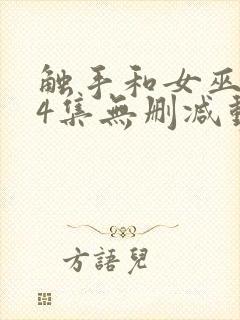 触手和女巫
4集無删减動
方語兒